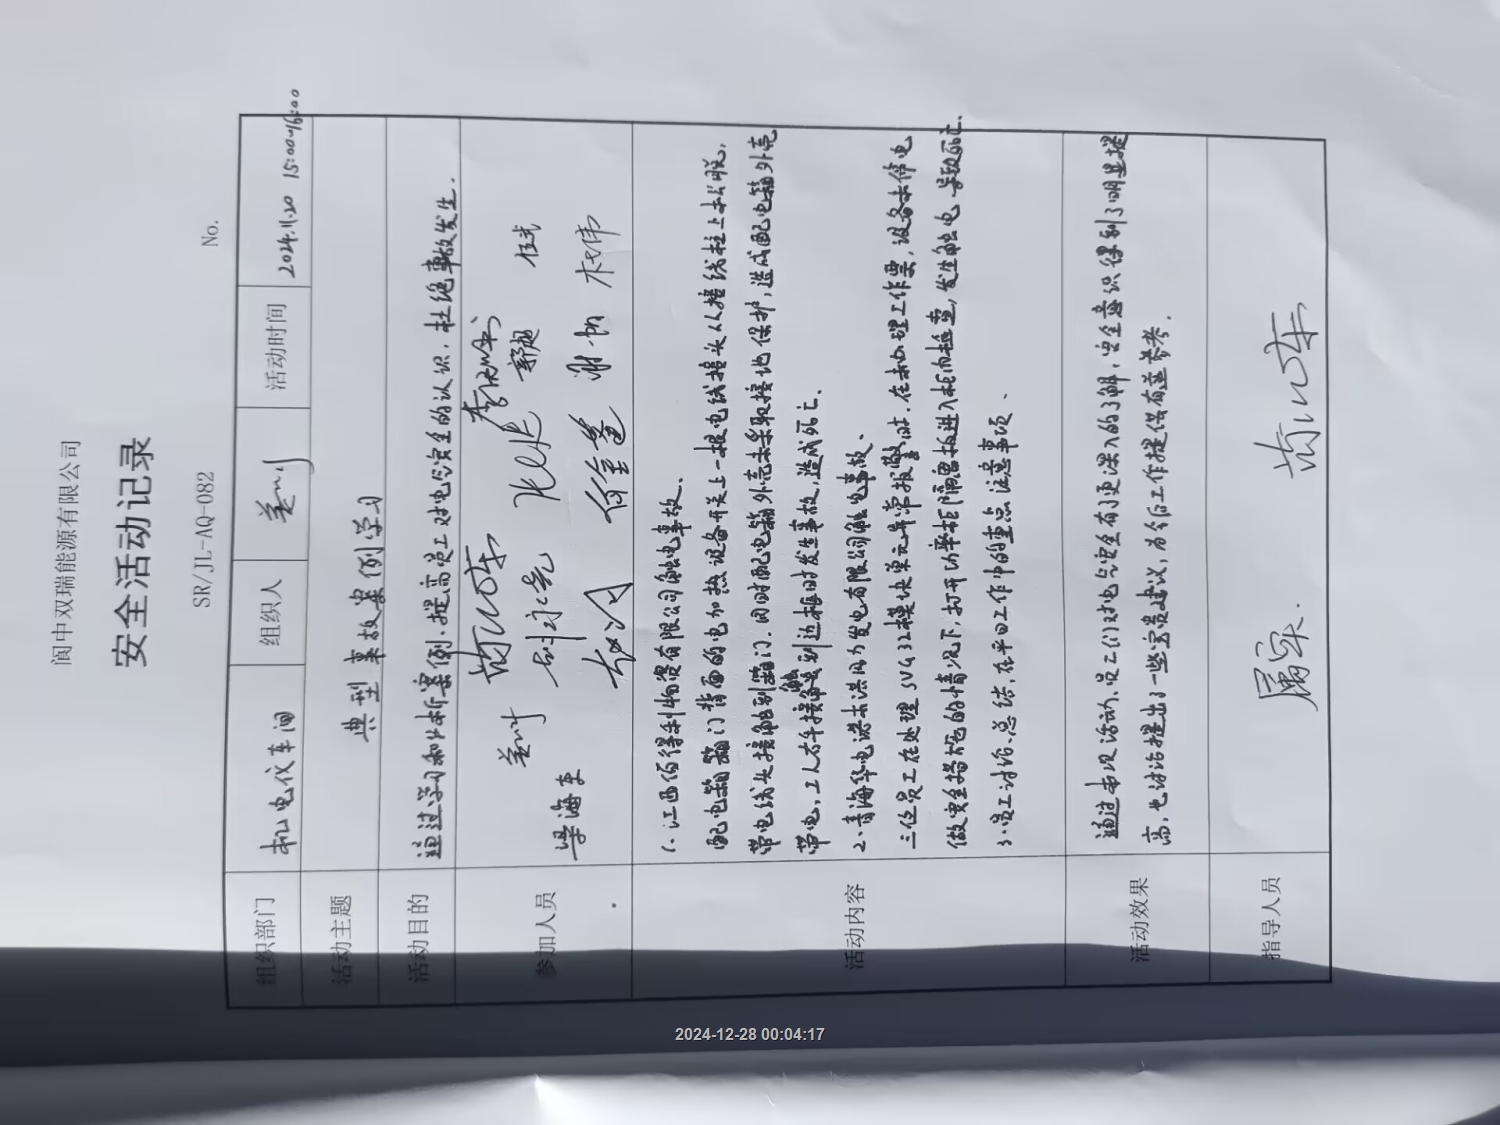 阆中双瑞能源有限公司
安全活动记录
SR/JL-AQ-082 No.
组织部门 机电仪车间 组织人 活动时间 2024.11.20 15:00-16:00
活动主题 典型事故案例学习
活动目的 通过学习和分析案例,提高员工对电气安全的认识,杜绝事故发生.
参加人员
郭超
梁海
谢
活动内容
1、江西佰得利物资有限公司触电事故.
配电箱箱门背面的电加热设备开关上一根电线接头从接线柱上松脱,
带电线头接触到箱门.同时配电箱外壳未采取接地保护,造成配电箱外壳
带电,工人右手接触到边框时发生事故,造成死亡.
2、青海华电诺木洪风力发电有限公司触电事故、
三位员工在处理SVG 32模块单元异常报警时.在未办理工作票,设备未停电
做安全措施的情况下,打开功率柜隔离挡板进入柜内检查,发生触电导致死亡.
3、员工讨论、总结,在平日工作中的重点注意事项、
活动效果
通过本次活动,员工们对电气安全有了更深入的了解,安全意识得到了明显提
高,也讨论提出了一些宝贵建议,为今后工作提供有益参考.
指导人员
2024-12-28 00:04:17